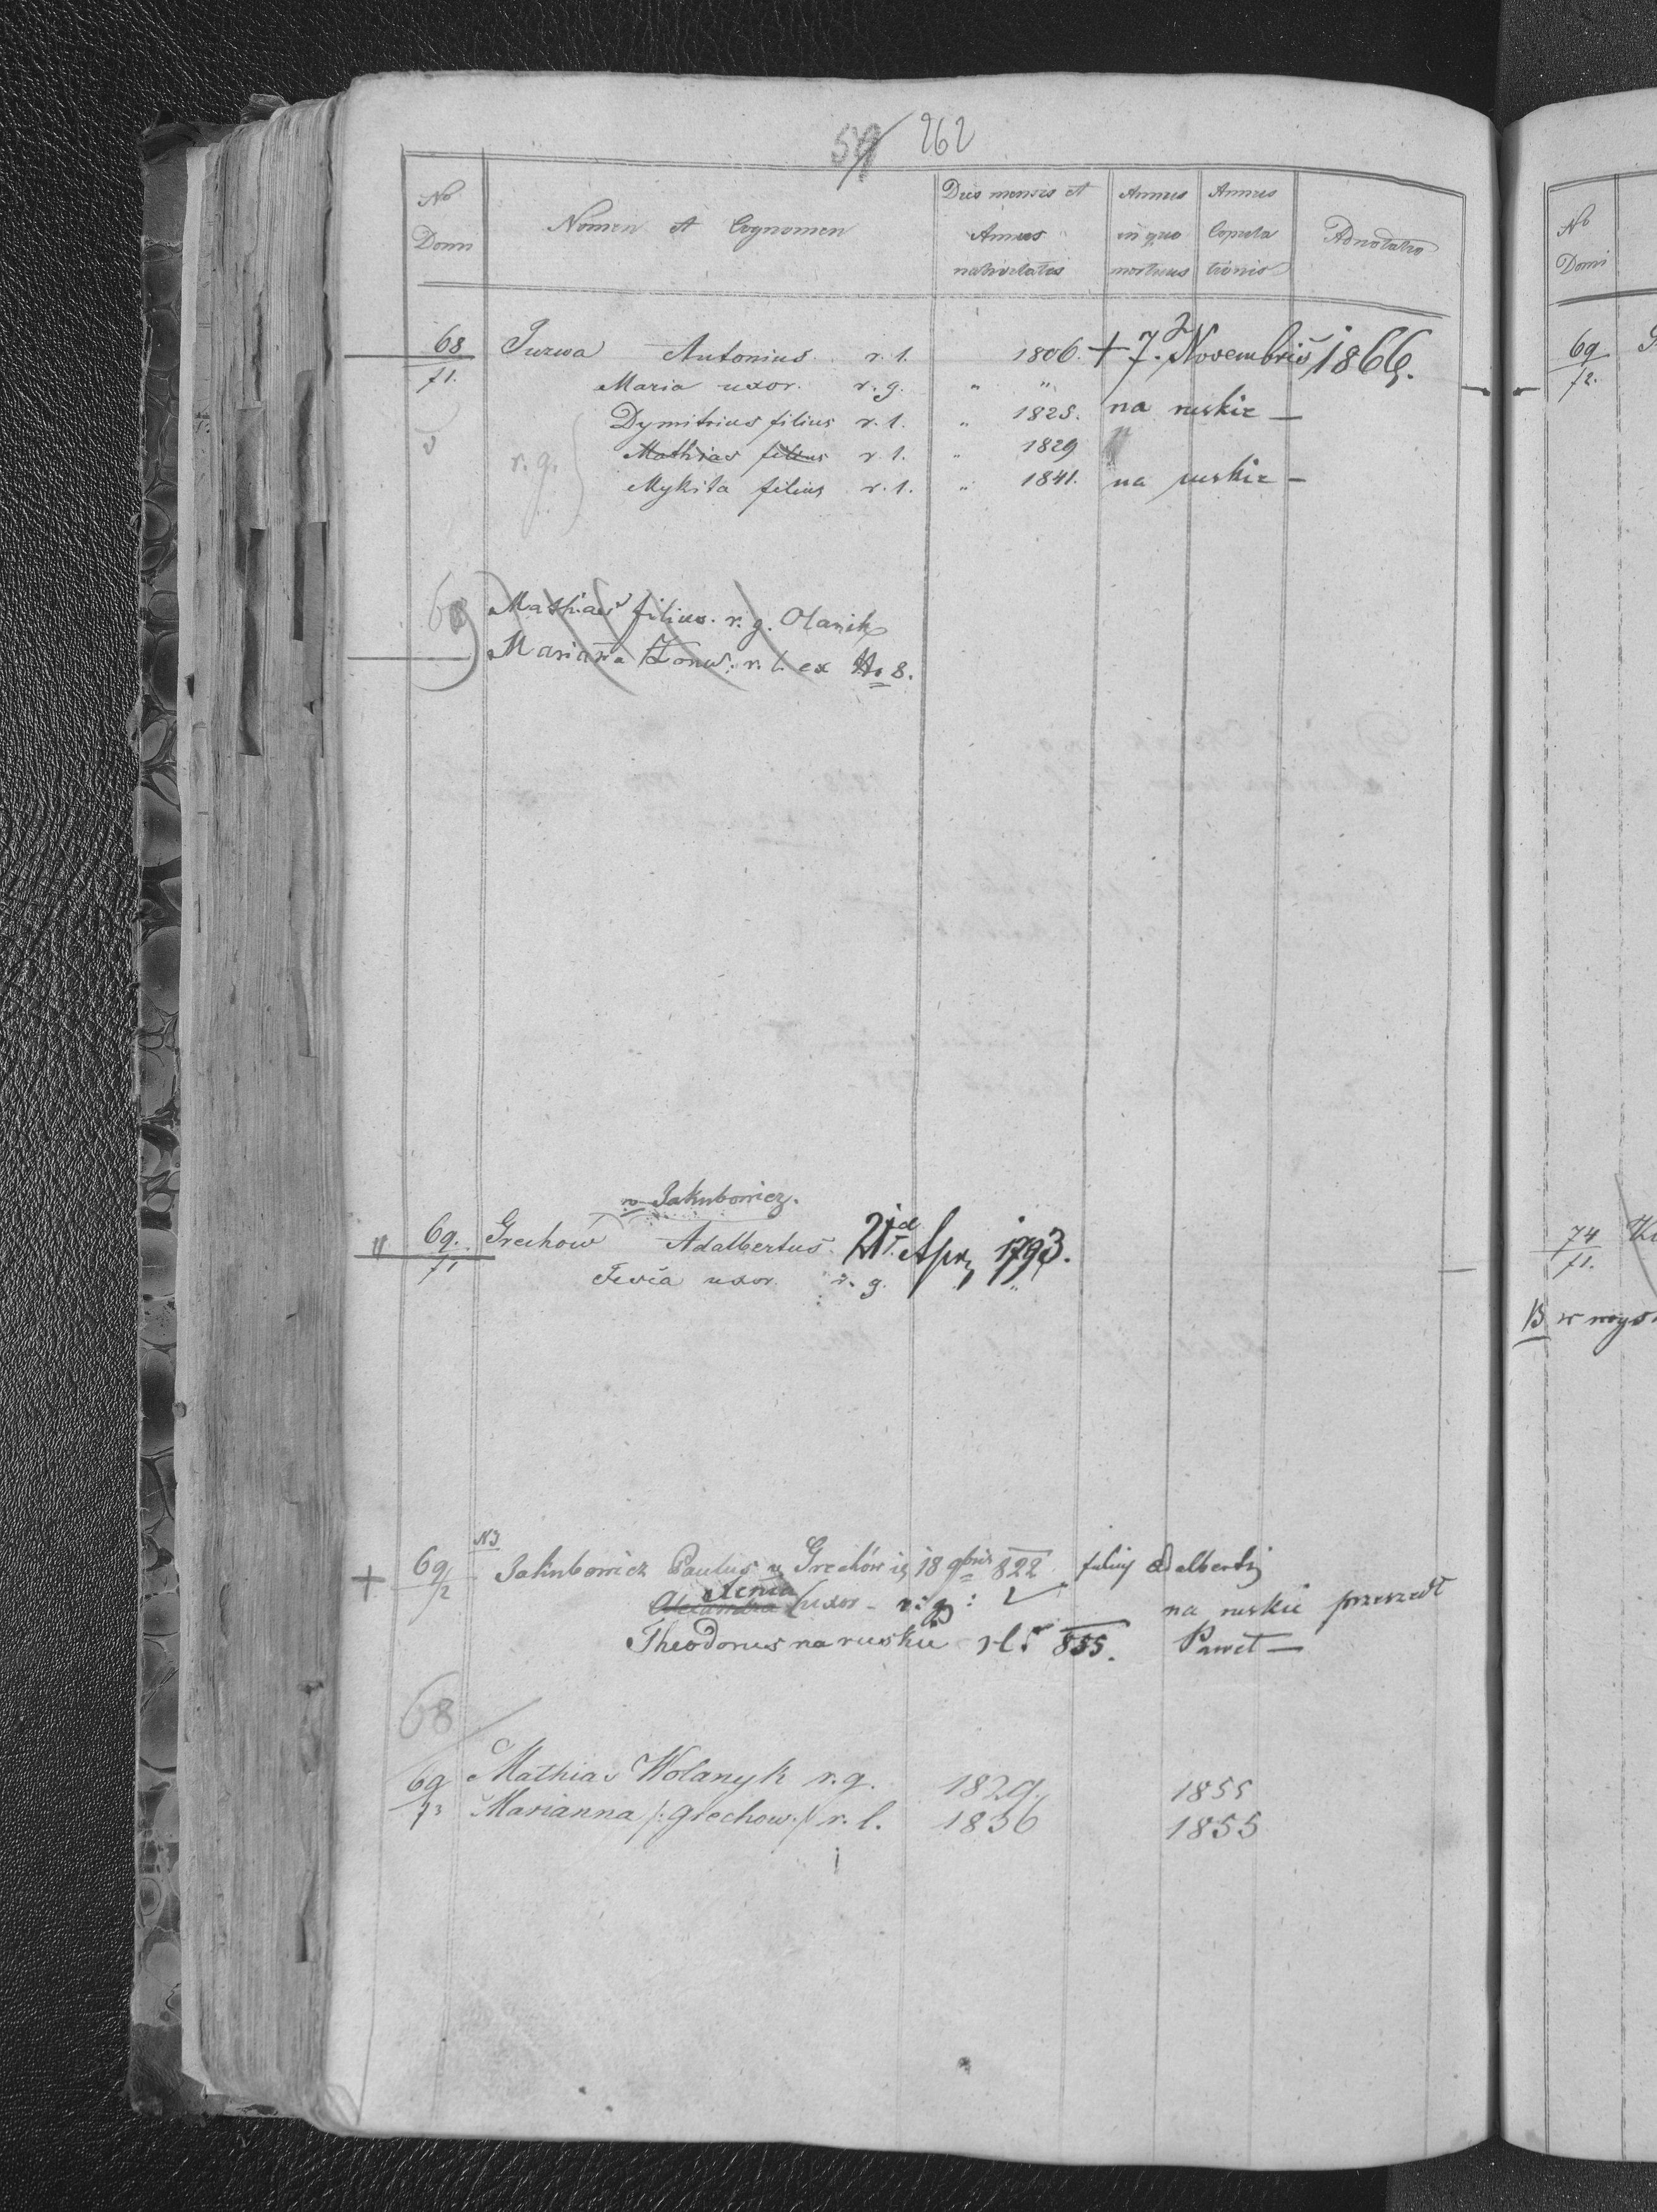 262
No Domi
Nomen et Cognomen
Dies mensis et Annus nativitatis
Annus in quo mortuus
Annus Copulationis
Adnotatio
68/71. Jurwa Antonius r. l. 1806. + 7. Novembris 1866.
Maria uxor. r. g. " "
Dymitrius filius r. l. " 1825. na ruskie —
Mathias filius r. l. " 1829
r. g. Mykita filius r. l. " 1841. na ruskie —
Mathias filius. r. g. Olanik
Marianna r. l. ex No 8.
v Jakubowicz.
69./71 Grechow Adalbertus. Apr 1793.
Tevia uxor. r. g. "
+ 69/72 Jakubowicz Paulus v Grechów 18 9bris 822 filius Adalberti
Alexandra Xenia uxor - r: g:
na ruskie przeszedł
Theodorus na ruskie r l. 855. Paweł —
68
69/73 Mathias Wolanyk r. g. 1829. 1855
Marianna /: Grechow :/ r. l. 1836 1855
No Domi
69/72.
74/71.